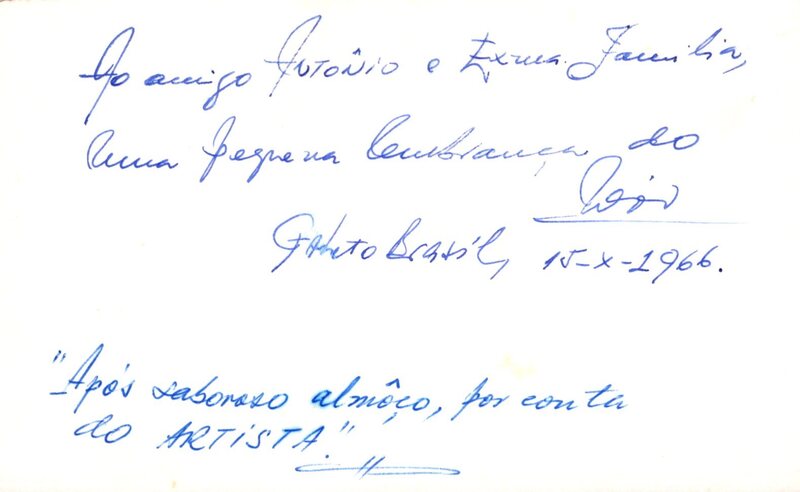 Ao amigo Antônio e Exma. Família,
uma pequena lembrança do
Brasil, 15-X-1966.
"Após saboroso almôço, por conta
do ARTISTA".